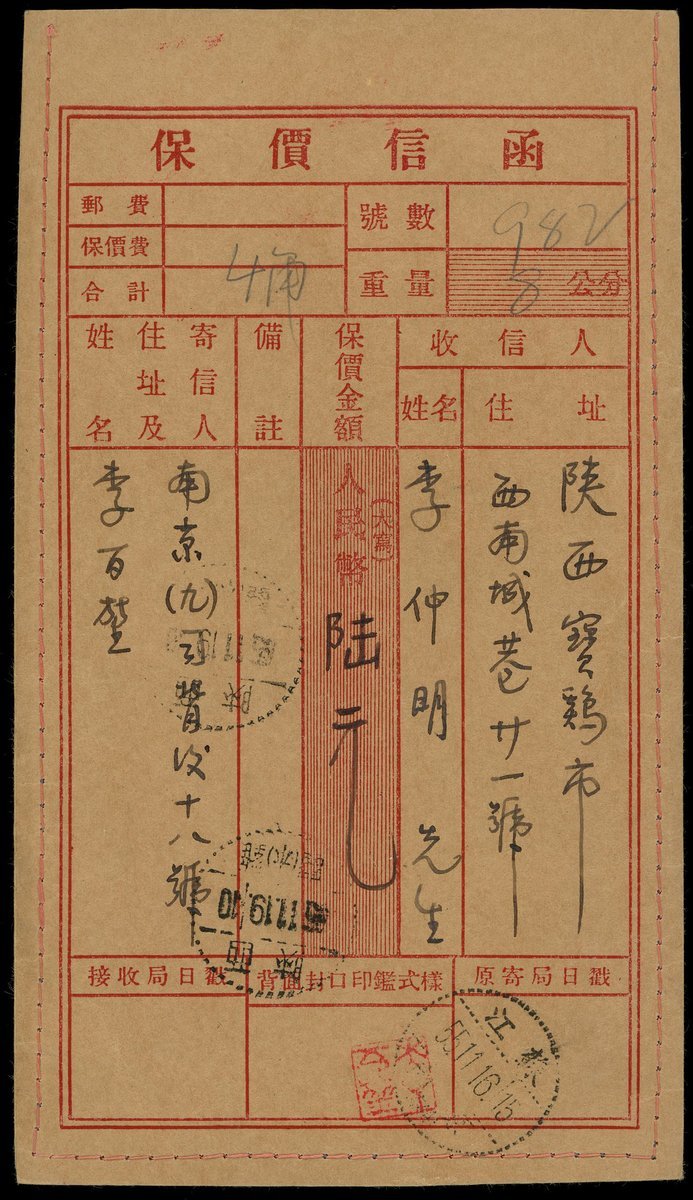 保價信函
郵費
保價費
合計
號數
982
重量
8 公分
收信人
住址
姓名
保價金額
備註
寄信人
住址及
姓名
陝西寶鷄市
西南城巷廿一號
李仲明先生
(大寫)
人民幣
陸元
南京(九)
背後十八號
李百
原寄局日戳
背面封口印鑑式樣
接收局日戳
陝西
11.19.10
陝
江蘇
55.11.16.15